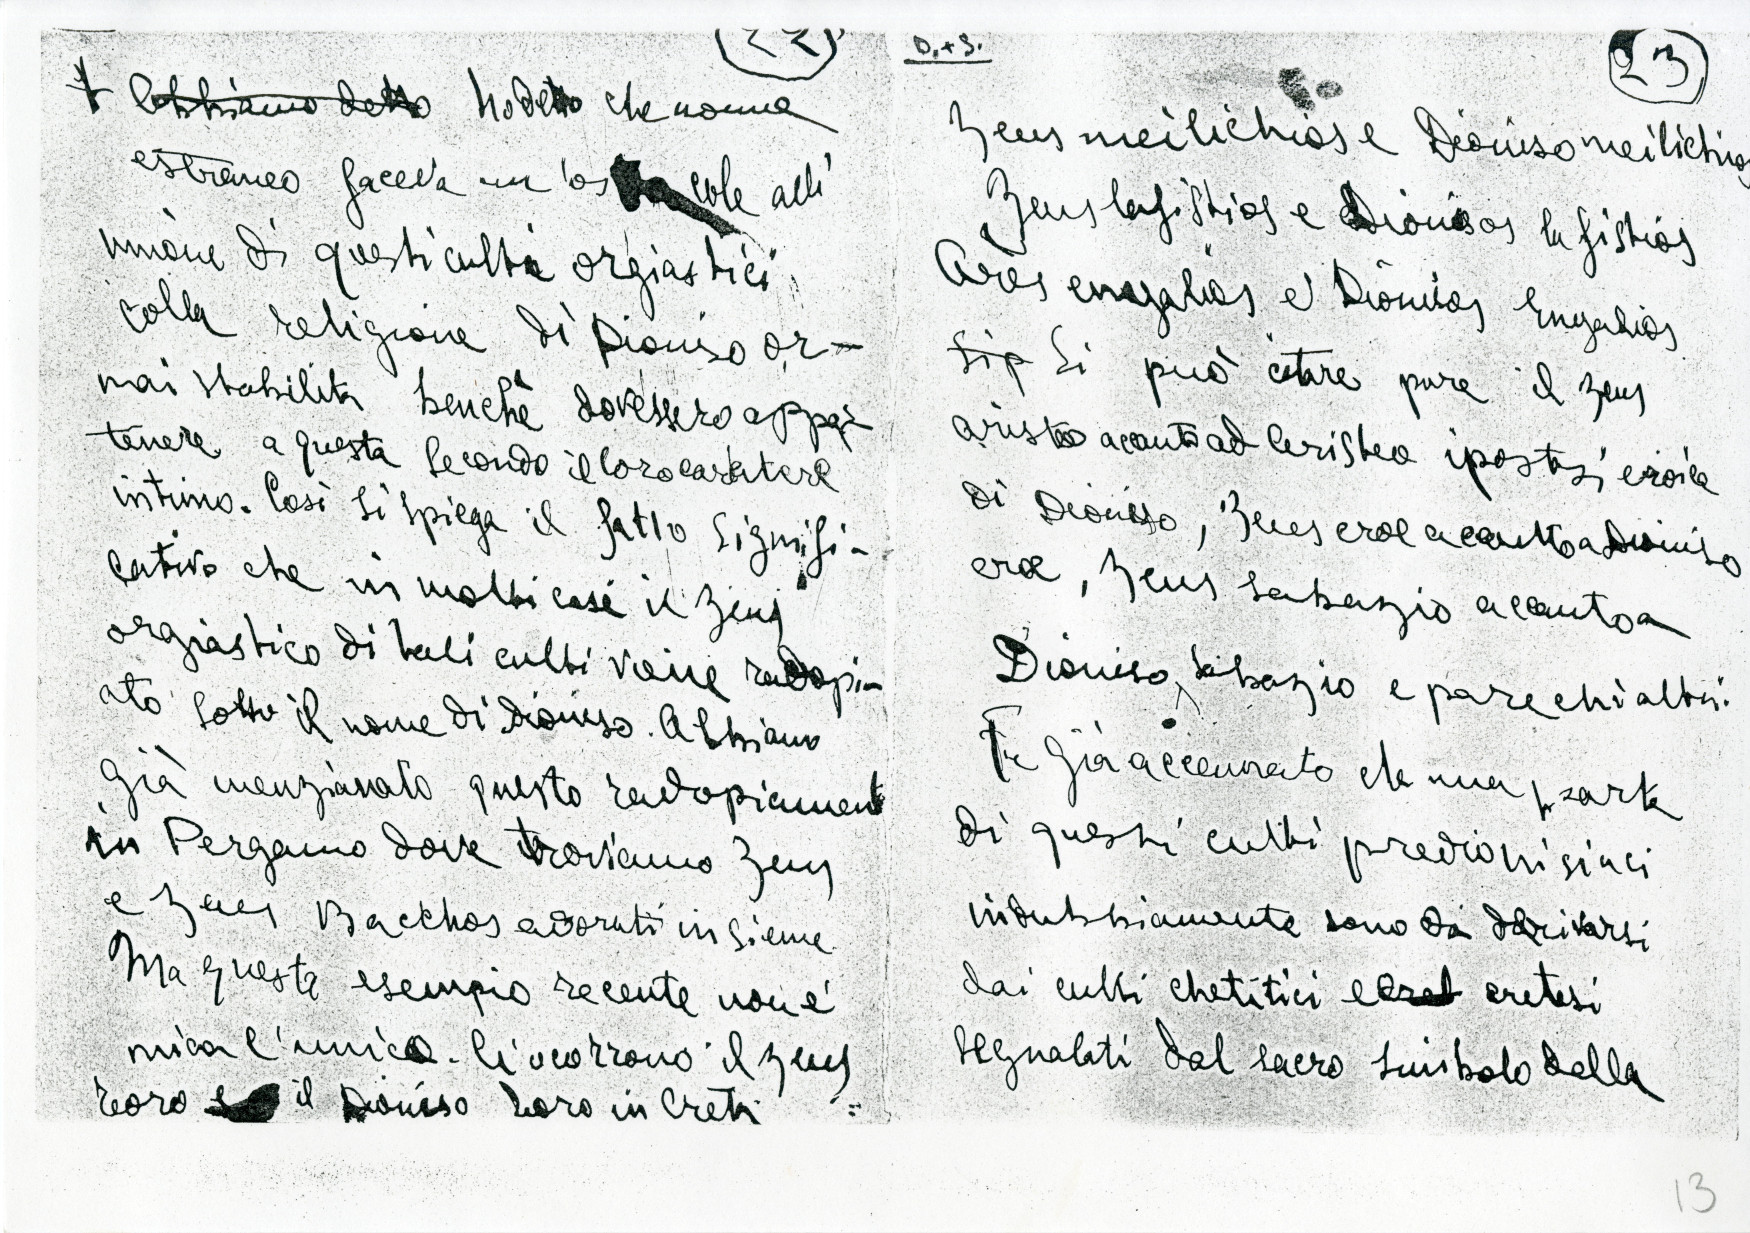 22
Abbiamo detto Ho detto che nonna
estraneo faceva un os cole all'
unione di questi culti orgiastici
colla religione di Dioniso or-
mai stabilita benchè dovessero appar-
tenere a questa secondo il loro caratere
intimo. Così si spiega il fatto signifi-
cativo che in molti casi il Zeus
orgiastico di tali culti viene radopi-
ato sotto il nome di Dioniso. Abbiamo
già menzionato questo radopiament
in Pergamo dove troviamo Zeus
e Zeus Bacchos adorati insieme
Ma questo esempio recente non è
mica l'unico. Ci ocorrono il Zeus
e il Dioniso in Creta
D.+S.
23
Zeus meilichios e Dioniso meilichios
Zeus lafistios e Dionisos lafistios
Ares enyalios e Dionisos Enyalios
Si può citare pure il Zeus
aristeo accanto ad Aristeo ipostasi eroica
di Dioniso, Zeus eroe accanto a Dioniso
eroe, Zeus sabazio accanto a
Dioniso sabazio e parechi altri.
Fu già accennato che una parte
di questi culti predionisiaci
indubbiamente sono da derivarsi
dai culti chetitici e cretesi
segnalati dal sacro simbolo della
13